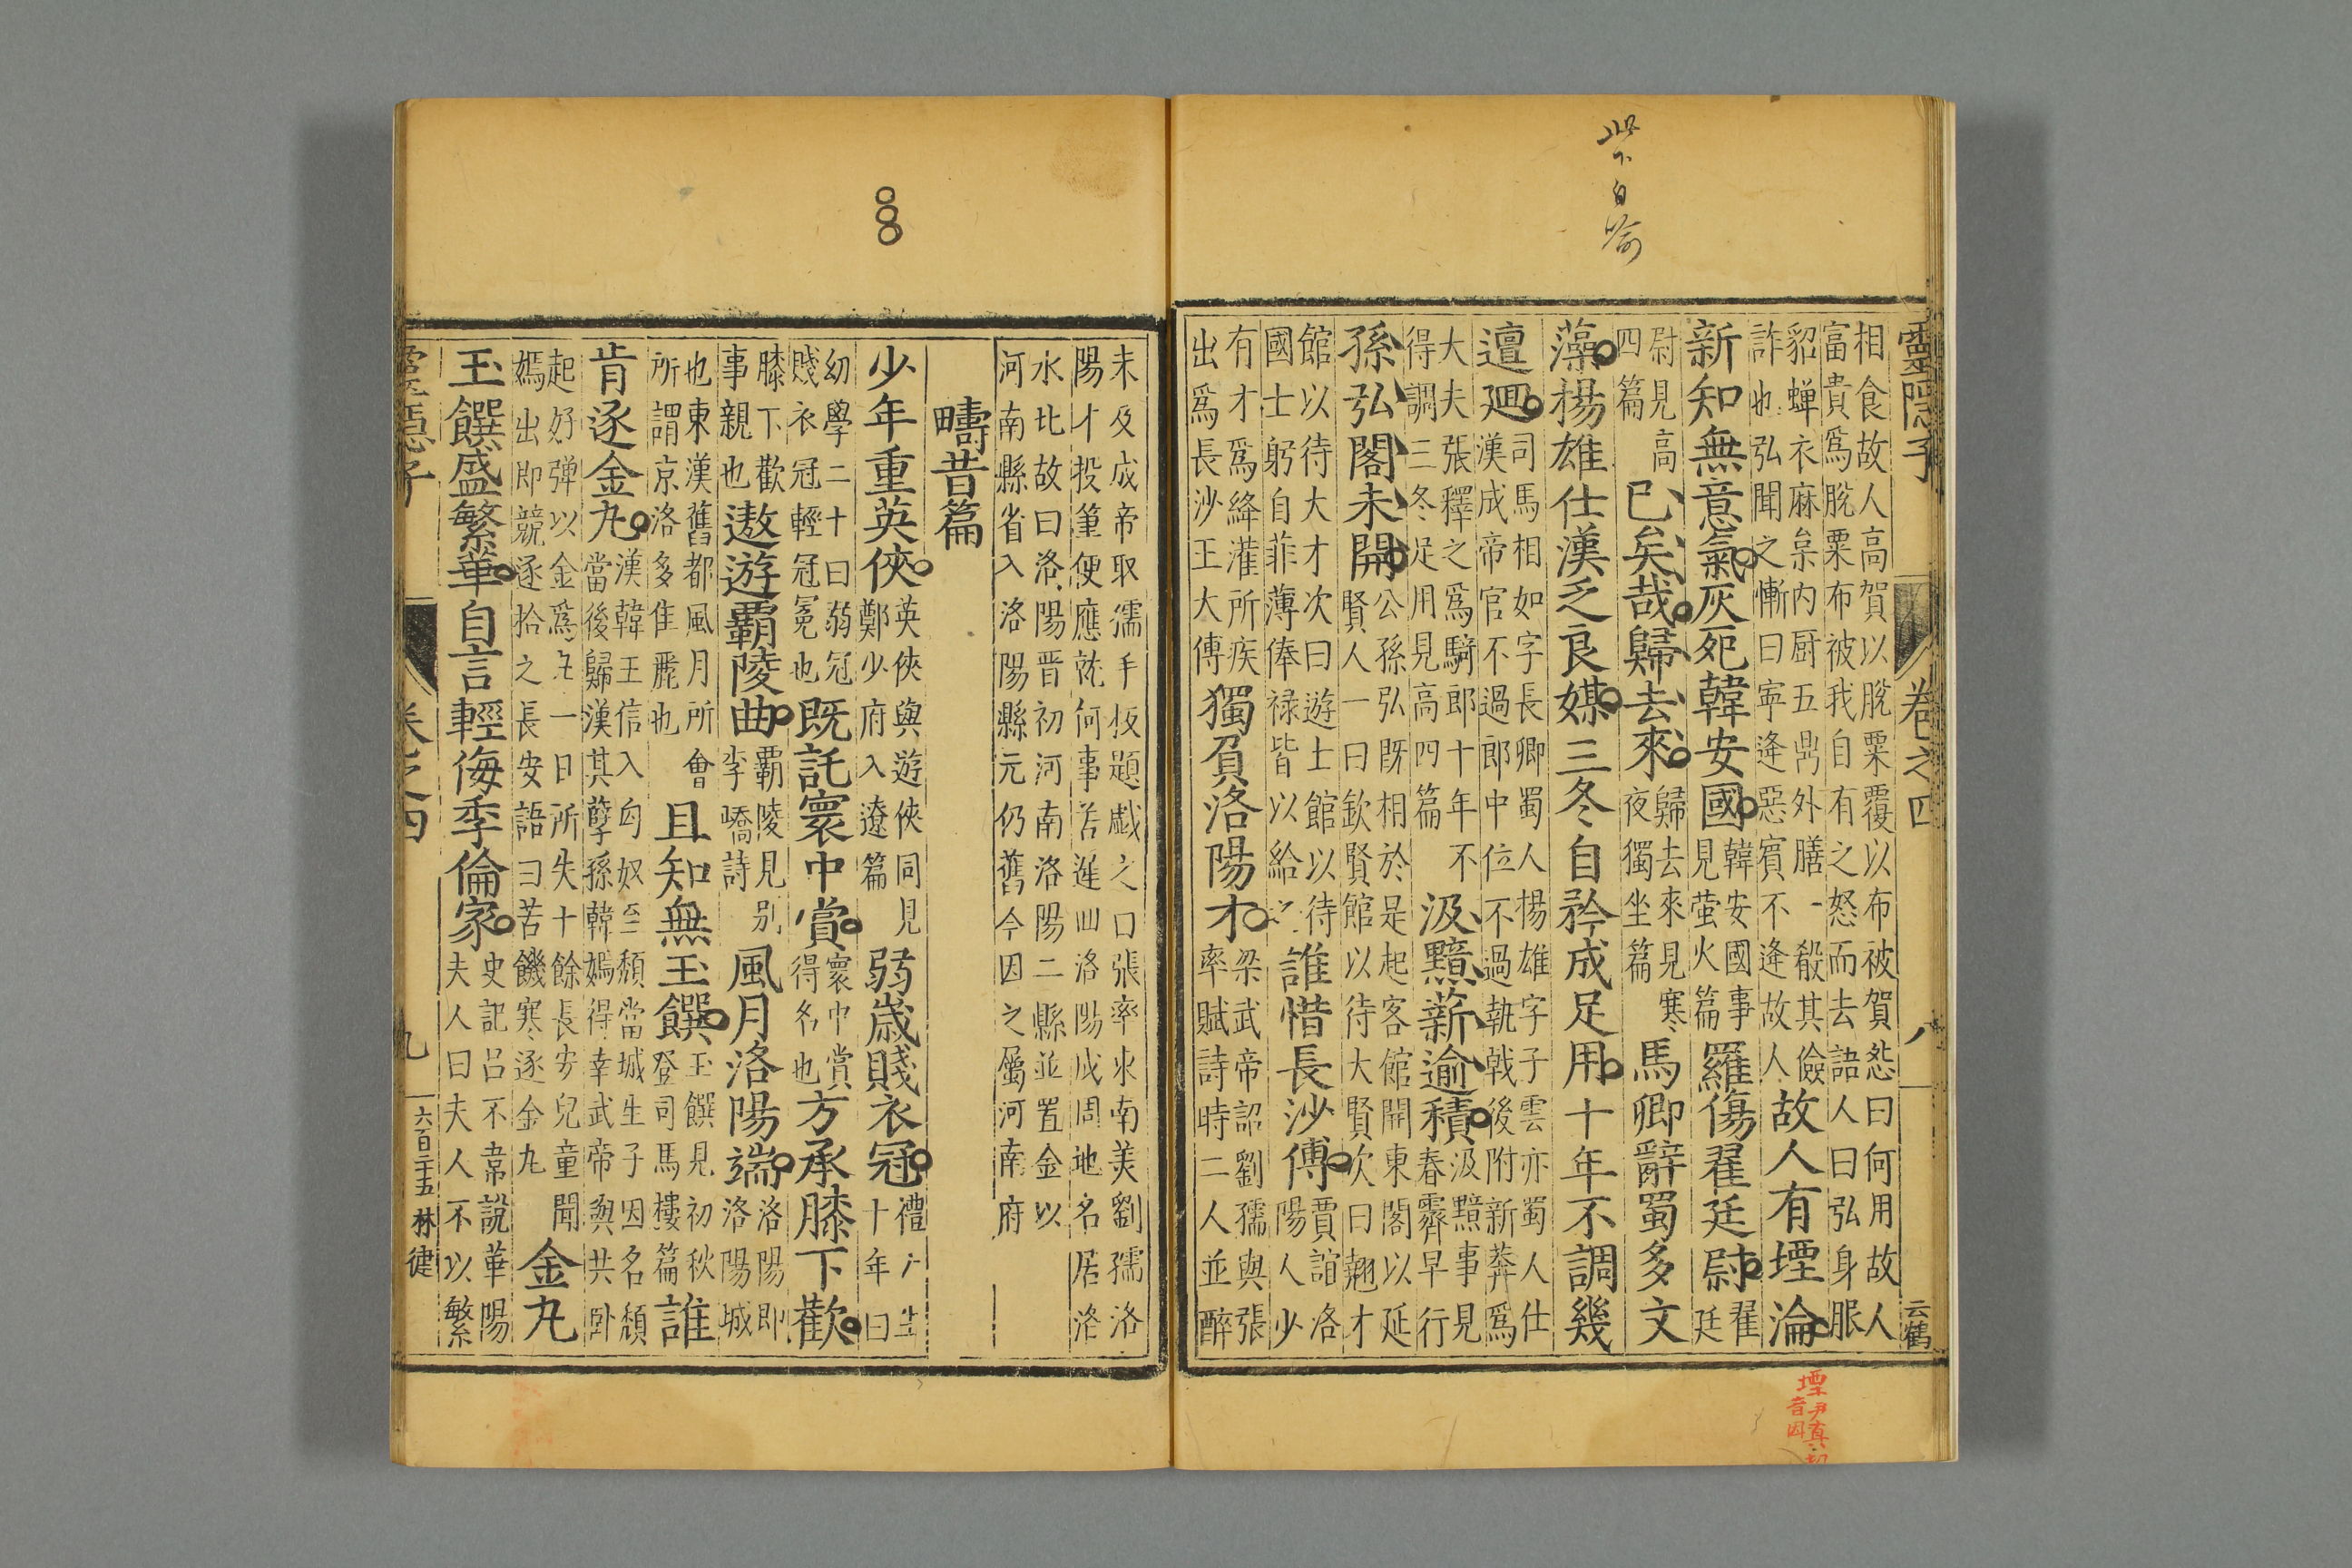 此下自喻
靈隱子
卷之四
八
云鶴
相食故人高賀以脫粟覆以布被賀怨曰何用故人
富貴爲脫粟布被我自有之怒而去語人曰弘身脤
貂蟬衣麻枲内厨五鼎外膳一殽其儉
詐也弘聞之慚曰寕逢惡賓不逢故人
故人有堙淪
新知無意氣灰死韓安國
韓安國事
見萤火篇
羅傷翟廷尉
翟廷
尉見高
四篇
已矣哉歸去來
歸去來見寒
夜獨坐篇
馬卿辭蜀多文
藻楊雄仕漢乏良媒三冬自矜成足用十年不調幾
邅迴
司馬相如字長卿蜀人楊雄字子雲亦蜀人仕
漢成帝官不過郎中位不過執戟後附新莽爲
大夫張釋之爲騎郎十年不
得調三冬足用見高四篇
汲黯薪逾積
汲黯事見
春霽早行
孫弘閣未開
公孫弘既相於是起客館開東閣以延
賢人一曰欽賢館以待大賢次曰翹才
館以待大才次曰遊士館以待
國士躬自菲薄俸禄皆以給之
誰惜長沙傅
賈誼洛
陽人少
有才爲絳灌所疾
出爲長沙王大傅
獨負洛陽才
梁武帝詔劉孺與張
率賦詩時二人並醉
未及成帝取孺手板題戯之曰張率東南美劉孺洛
陽才投筆便應就何事苦遲回洛陽成周地名居洛
水北故曰洛陽晋初河南洛陽二縣並置金以
河南縣省入洛陽縣元仍舊今因之屬河南府
疇昔篇
少年重英俠
英俠與遊俠同見
鄭少府入遼篇
弱歲賤衣冠
禮人生
十年曰
幼學二十曰弱冠
賤衣冠輕冠冕也
既託寰中賞
寰中賞
得名也
方承膝下歡
膝下歡
事親也
遨遊覇陵曲
覇陵見别
李嶠詩
風月洛陽端
洛陽即
洛陽城
也東漢舊都風月所會
所謂京洛多隹麗也
且知無玉饌
玉饌見初秋
登司馬樓篇
誰
肯逐金九
漢韓王信入匈奴至頹當城生子因名頹
當後歸漢其孽孫韓嫣得幸武帝輿共卧
起好弹以金爲九一日所失十餘長安兒童聞
嫣出即競逐拾之長安語曰苦饑寒逐金九
金九
玉饌盛繁華自言輕侮季倫家
史記吕不韋說華陽
夫人曰夫人不以繁
靈隱子
卷之四
九
六百二十五
林徤
堙
音因